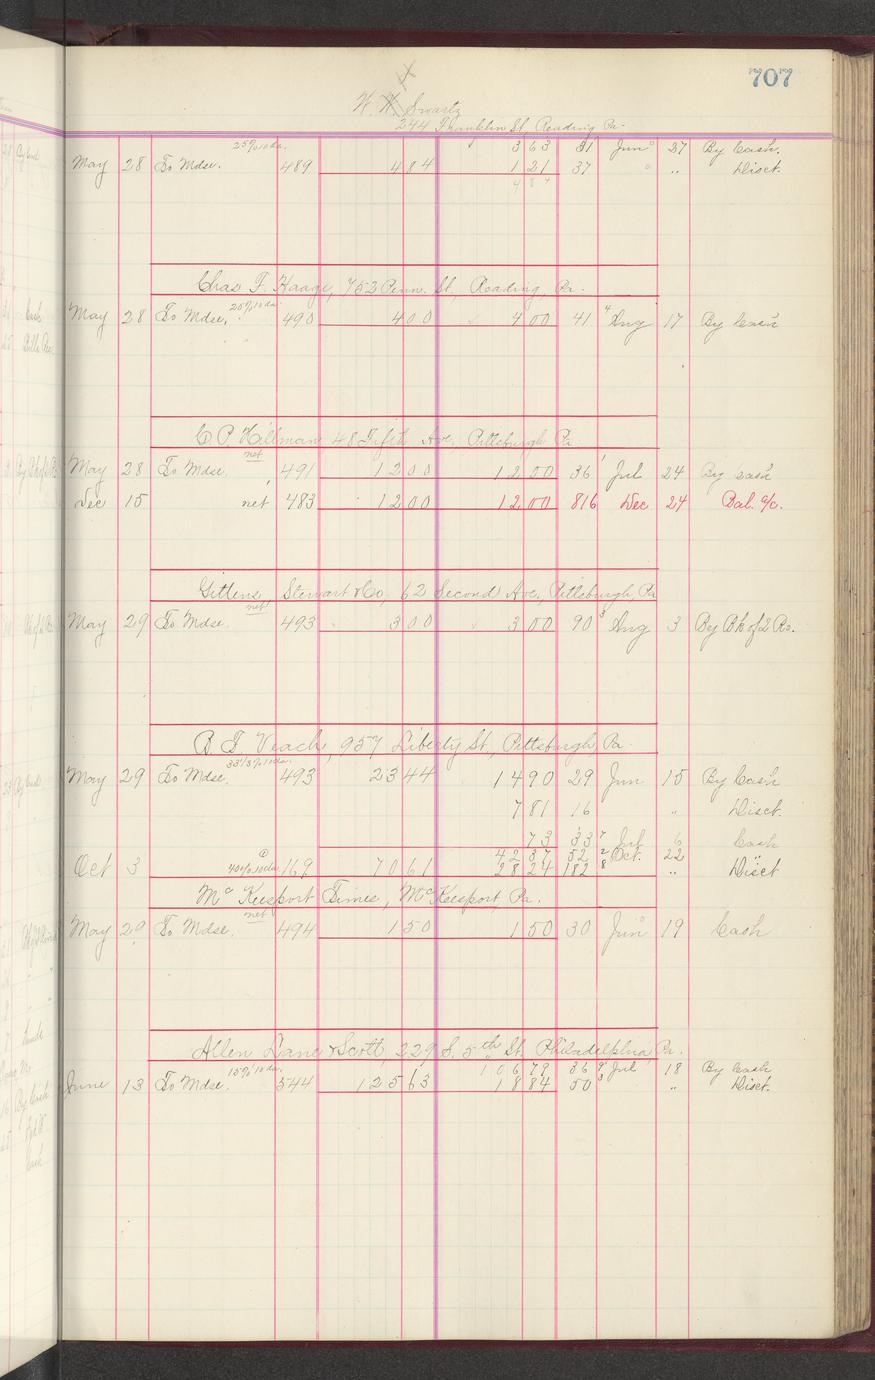 707
W. H. Swartz
244 Franklin St, Reading Pa.
25% 10 da. 363 31 Jun 27 By Cash.
May 28 To Mdse. 489 484 121 37 " Disct.
484
Chas F. Haage, 753 Penn. St, Reading, Pa.
May 28 To Mdse, 20% 10 da. 490 400 400 41 4 Aug 17 By Cash
C. P. Hillman, 48 Fifth Ave, Pittsburgh Pa
May 28 To Mdse. net 491 1200 1200 36 1 Jul 24 By Cash
Dec 15 net 483 1200 1200 816 Dec 24 Bal. a/c.
Gittens, Stewart & Co, 62 Second Ave, Pittsburgh, Pa
May 29 To Mdse. net 493 300 300 90 3 Aug 3 By Bk of 2 Rs.
B. F. Veach, 957 Liberty St, Pittsburgh, Pa.
May 29 To Mdse. 33 1/3% 10 da. 493 2344 1490 29 Jun 15 By Cash
781 16 " Disct.
73 33 7 Jul 6 Cash
4237 52 2 Oct. 22 "
Oct 3 40% 10 da 169 7061 2824 182 8 " Disct
McKeesport Times, McKeesport, Pa.
May 29 To Mdse. net 494 150 150 30 Jun 19 Cash
Allen Lane & Scott, 229 S. 5th St, Philadelphia, Pa.
10679 36 9 Jul 18 By Cash
June 13 To Mdse. 15% 10 da. 544 12563 1884 50 3 " Disct.